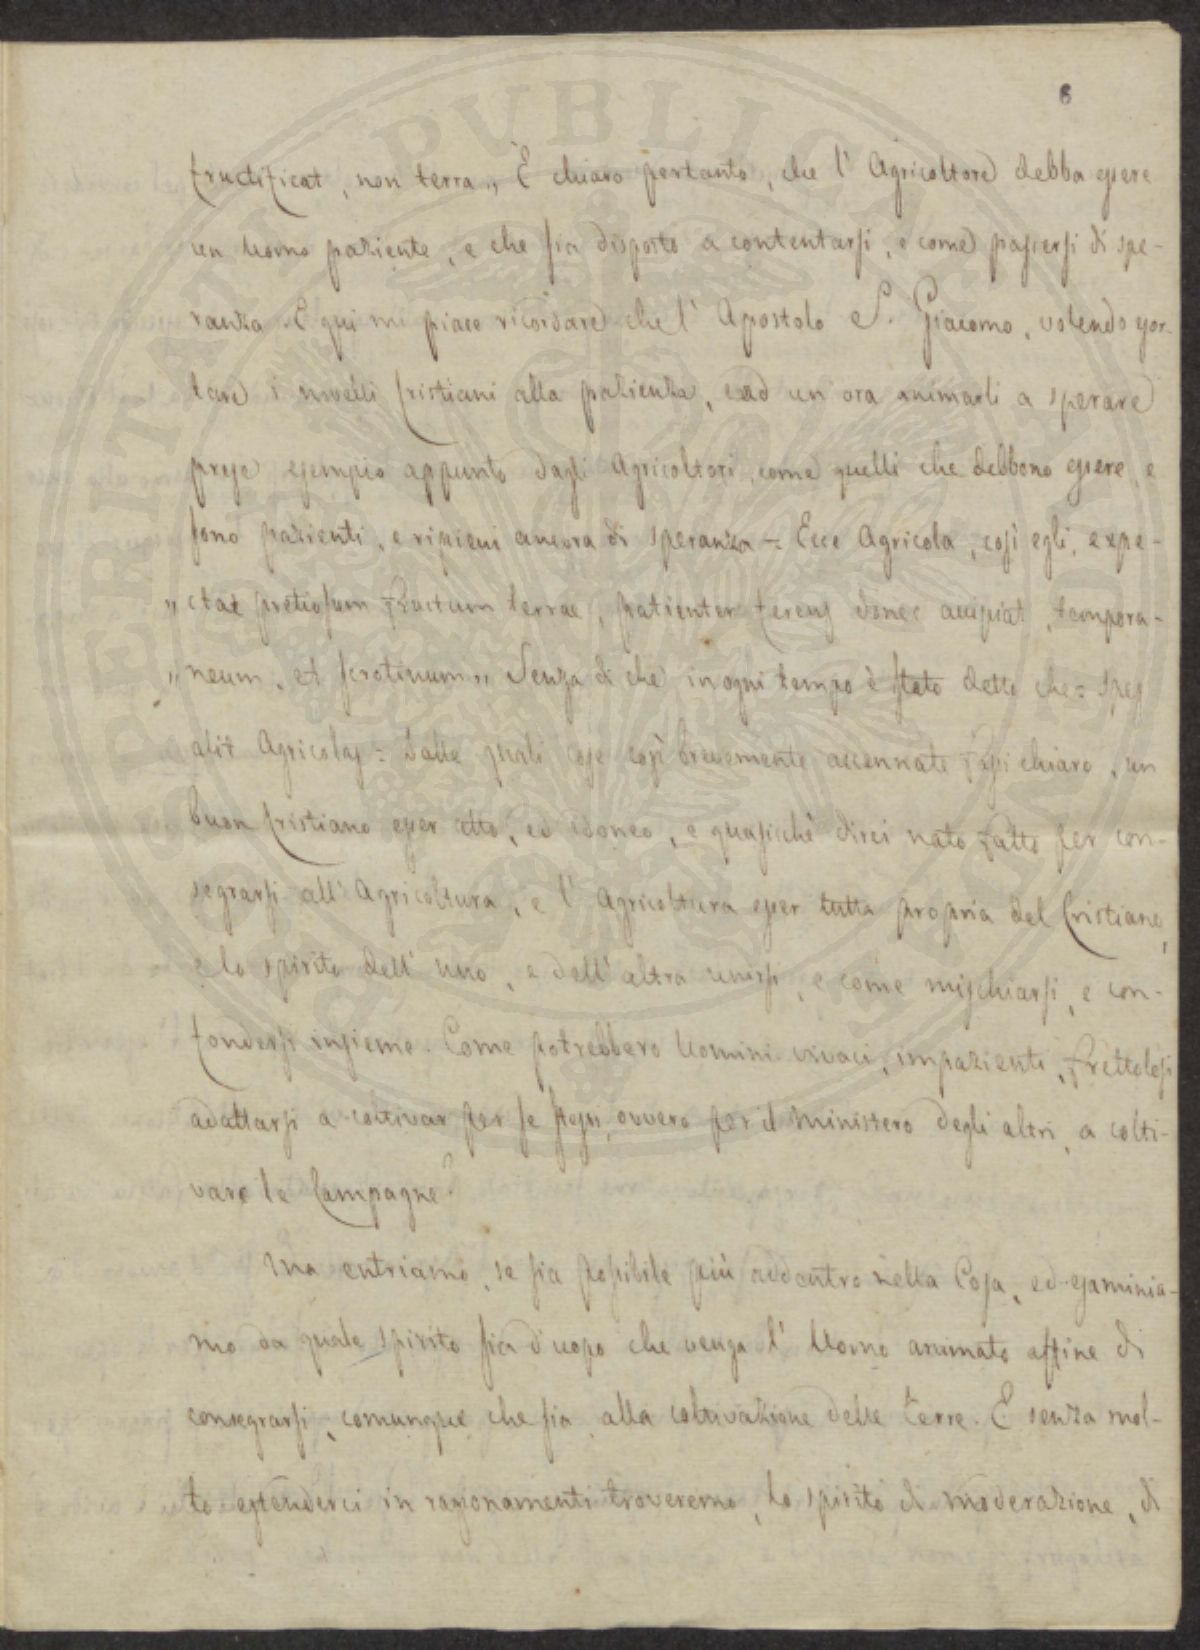 6
fructificat, non terra „ È chiaro pertanto, che l' Agricoltore debba essere
un Uomo paziente, e che sia disposto a contentarsi, e come pascersi di spe-
ranza. E qui mi piace ricordare che l' Apostolo S. Giacomo, volendo esor-
tare i novelli Cristiani alla pazienza, ead un' ora animarli a sperare
prese esempio appunto dagli Agricoltori, come quelli che debbono essere, e
sono pazienti, e ripieni ancora di speranza = Ecce Agricola, così egli, expe-
„ ctat pretiosum fructum terrae, patienter ferens donec accipiat tempora-
„ neum, et serotinum „ Senza di che in ogni tempo è stato detto che = Spes
alit Agricolas = Dalle quali cose così brevemente accennate fassi chiaro, un
buon Cristiano esser atto, ed idoneo, e quasicchè direi nato fatto per con-
segrarsi all' Agricoltura, e l' Agricoltura esser tutta propria del Cristiano,
e lo spirito dell' uno, e dell' altra unirsi, e come mischiarsi, e con-
fondersi insieme. Come potrebbero Uomini vivaci, impazienti, frettolosi
adattarsi a coltivar per se stessi, ovvero per il ministero degli altri, a colti-
vare le Campagne?
Ma entriamo, se sia possibile più addentro nella Cosa, ed esaminia-
mo da quale spirito sia d'uopo che venga l' Uomo animato affine di
consegrarsi, comunque che sia, alla coltivazione delle terre. E senza mol-
to estenderci in ragionamenti troveremo, lo spirito di moderazione, di
PUBLICA